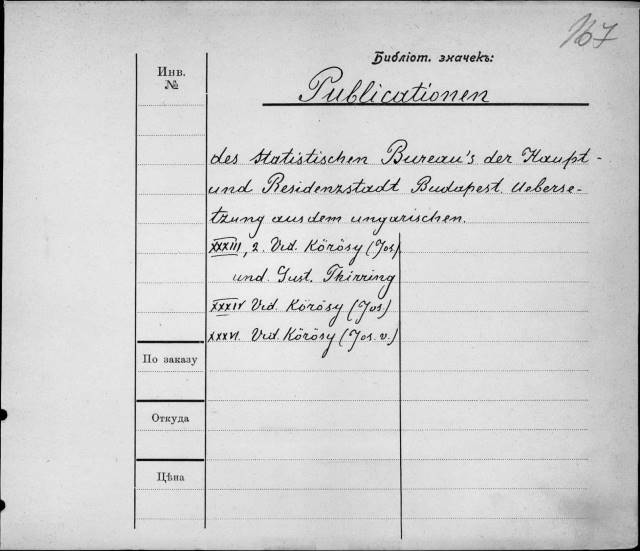 167
Библіот. значекъ:
Инв.
№
Publicationen
des statistischen Bureau's der Haupt-
und Residenzstadt Budapest. Ueberse-
tzung aus dem ungarischen.
XXXIII, 2. Vid. Körösy (Jos)
und Gust. Thirring
XXXIV Vid. Körösy (Jos)
XXXVI. Vid. Körösy (Jos. v.)
По заказу
Откуда
Цѣна